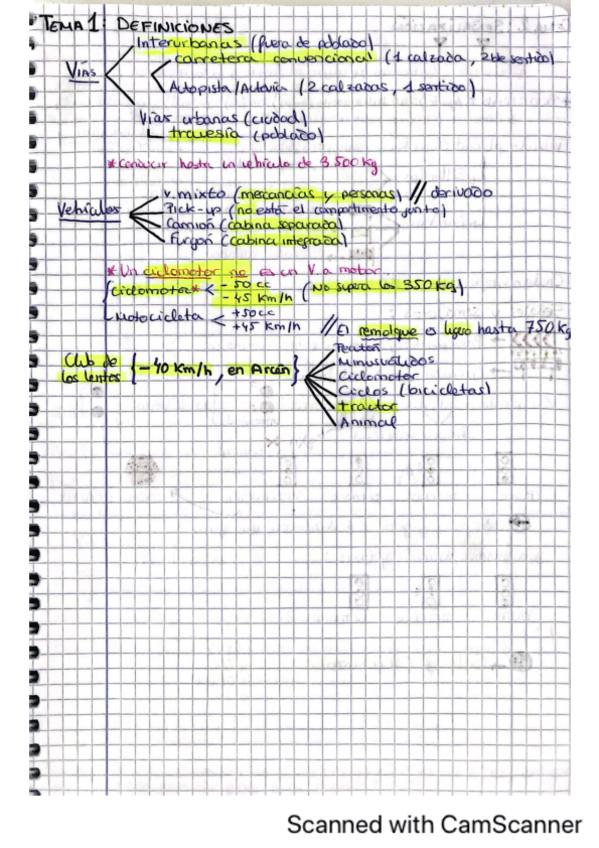 TEMA 1: DEFINICIONES
Interurbanas (fuera de poblado)
carretera convencional (1 calzada, 2 de sentido)
Vías
Autopista/Autovía (2 calzadas, 1 sentido)
Vías urbanas (ciudad)
travesía (poblado)
*Conducir hasta un vehículo de 3 500 kg
V. mixto (mercancías y personas) // derivado
Vehículos
Pick-up (no está el compartimento junto)
Camión (cabina separada)
Furgón (cabina integrada)
*Un ciclomotor no es un V. a motor.
Ciclomotor* < - 50 cc
- 45 km/h (No supera los 350 kg)
Motocicleta < +50 cc
+45 km/h // El remolque es ligero hasta 750 kg
Club de los lentos {-40 km/h, en Arcén}
Peatón
Minusválidos
Ciclomotor
Ciclos (bicicletas)
tractor
Animal
Scanned with CamScanner